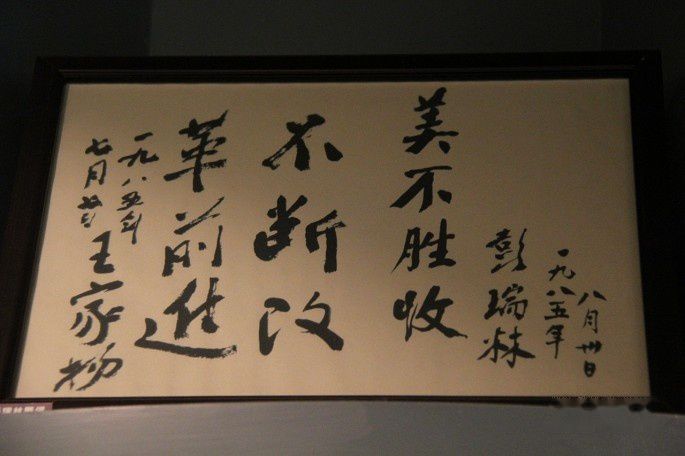 美不胜收
彭瑞林
一九八五年
八月卅日
不断改
革前進
一九八五年
七月
王家扬